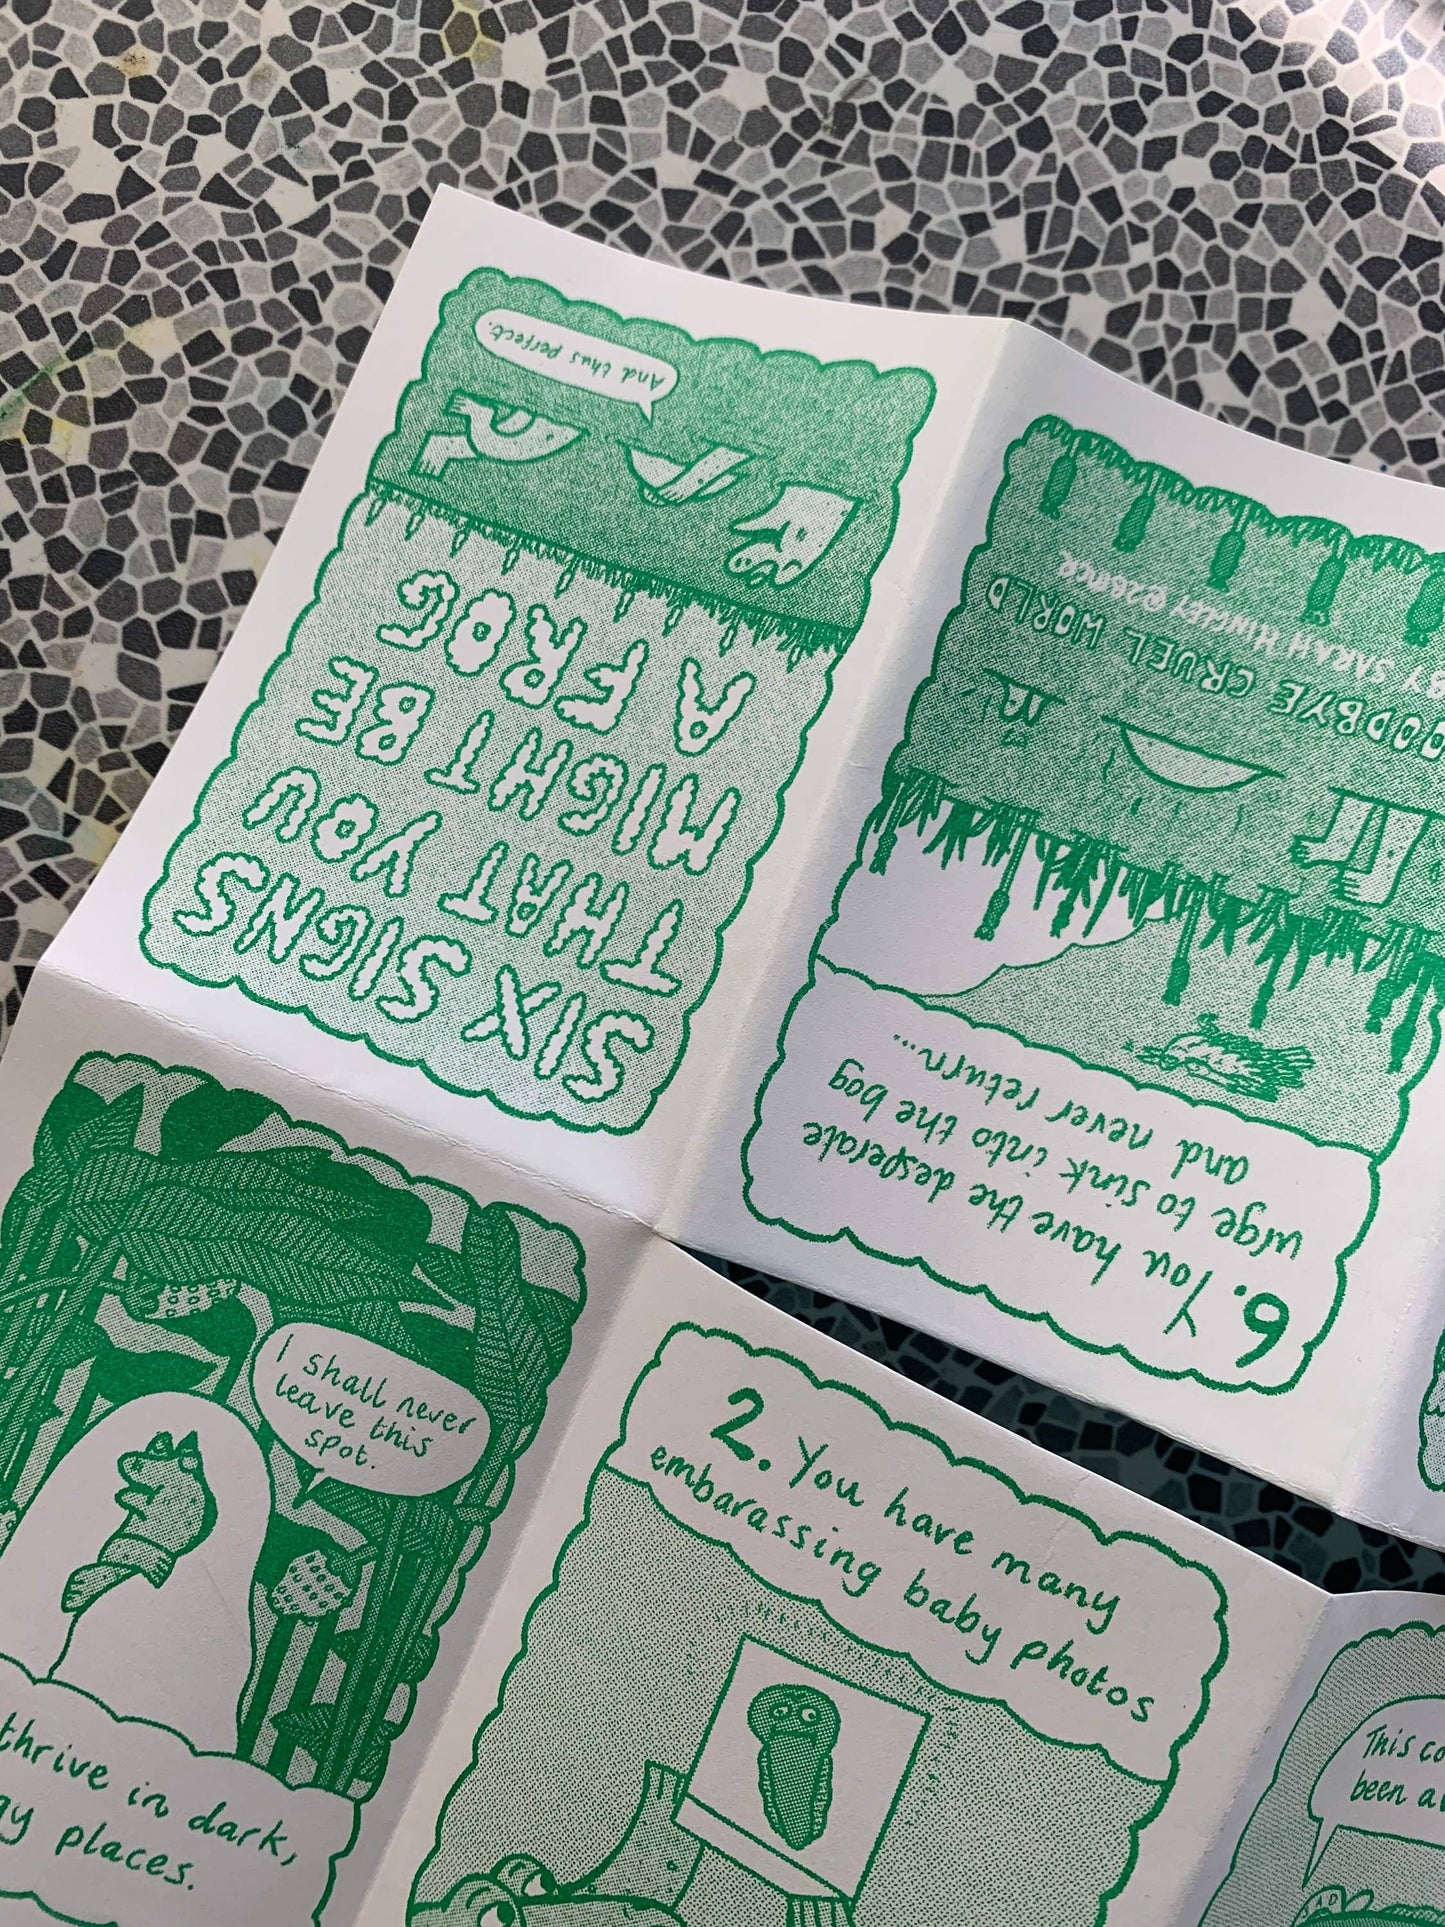 SIX SIGNS
THAT YOU
MIGHT BE
A FROG
And thus perfect.
6. You have the desperate
urge to sink into the bog
and never return...
OODBYE CRUEL WORLD
BY SARAH HINGLEY
I shall never
leave this
spot.
thrive in dark,
places.
2. You have many
embarassing baby photos
This
been